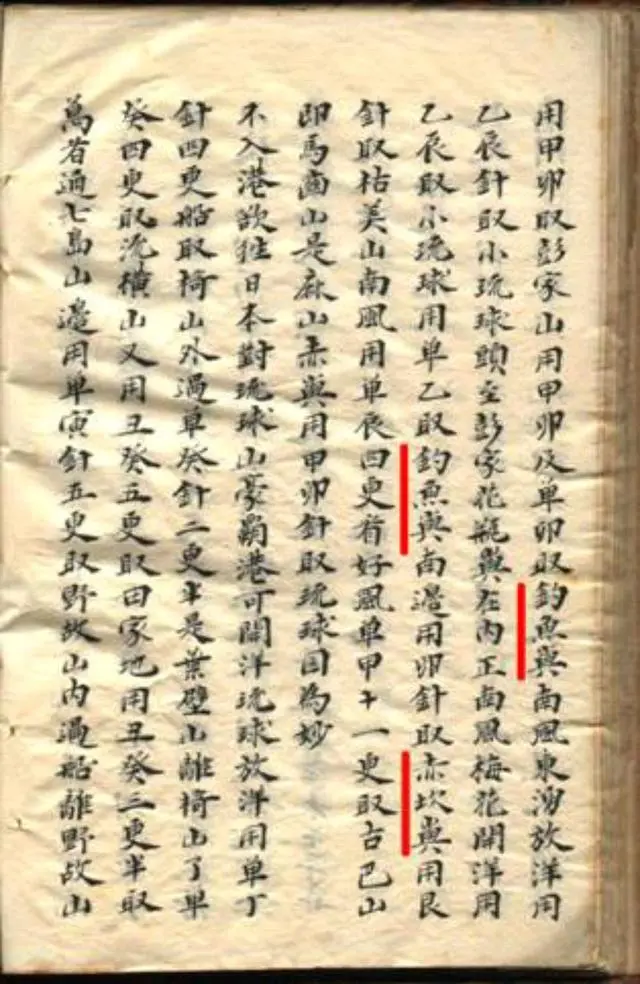 用甲卯取彭家山用甲卯及单卯取釣魚嶼南風東湧放洋用
乙辰針取小琉球頭至彭家花瓶嶼在内正南風梅花開洋用
乙辰取小琉球用单乙取釣魚嶼南邉用卯針取赤坎嶼用艮
針取枯美山南風用单辰四更看好風单甲十一更取古巴山
即馬歯山是麻山赤嶼用甲卯針取琉球囯為妙
不入港欲往日本對琉球山豪霸港可開洋琉球放洋用单丁
針四更船取椅山外過单癸針二更半是葉壁山離椅山了单
癸四更取流横山又用丑癸五更取田家地用丑癸三更半取
萬者通七島山邉用单寅針五更取野故山内過船離野故山